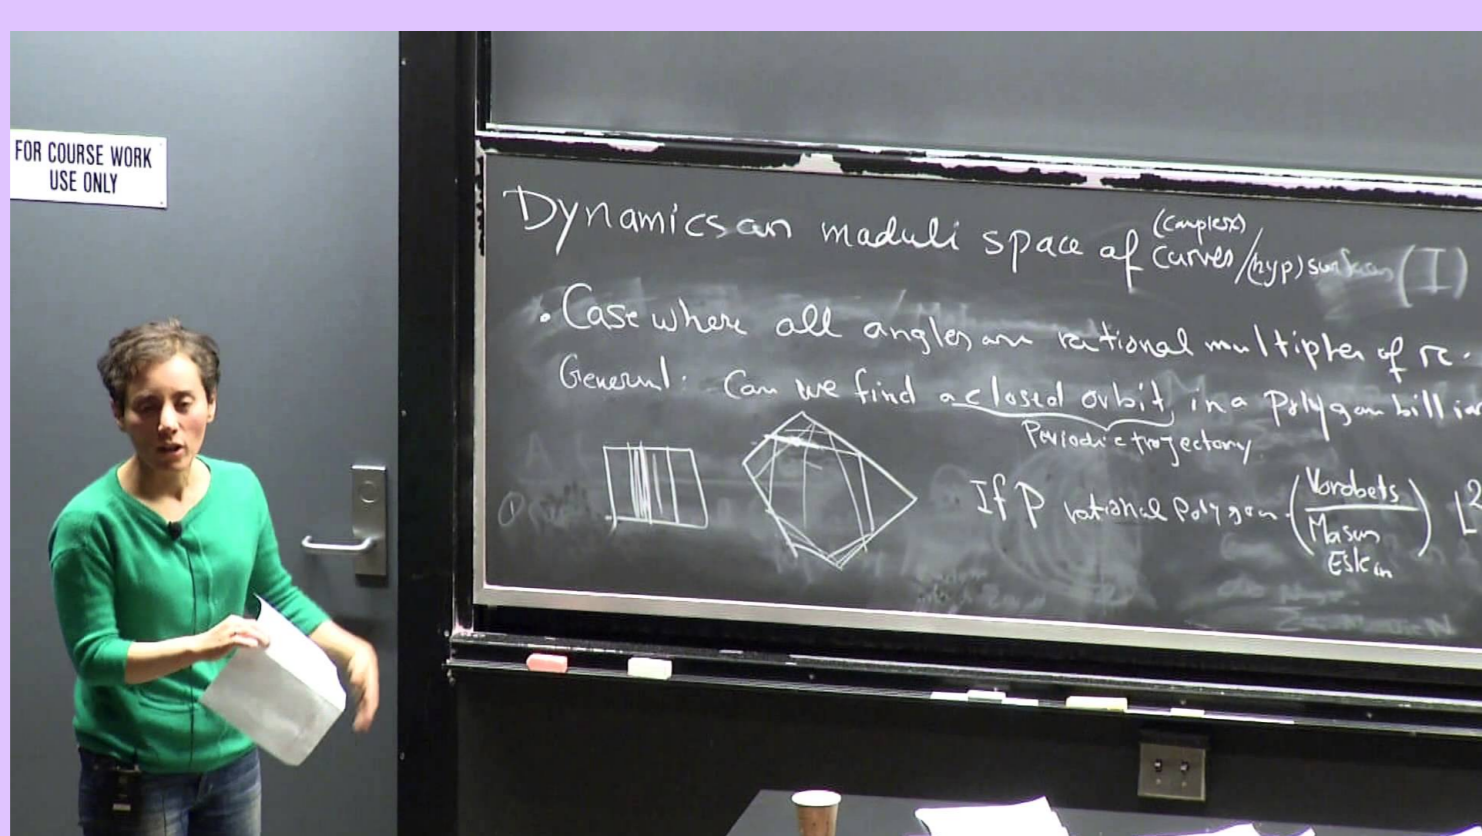 FOR COURSE WORK
USE ONLY
Dynamics on moduli space of (complex) curves/(hyp) surfaces (I)
• Case where all angles are rational multiples of π.
General: Can we find a closed orbit, in a polygon billi
Periodic trajectory.
If P rational polygon (Vorobets
Masur
Eskin)